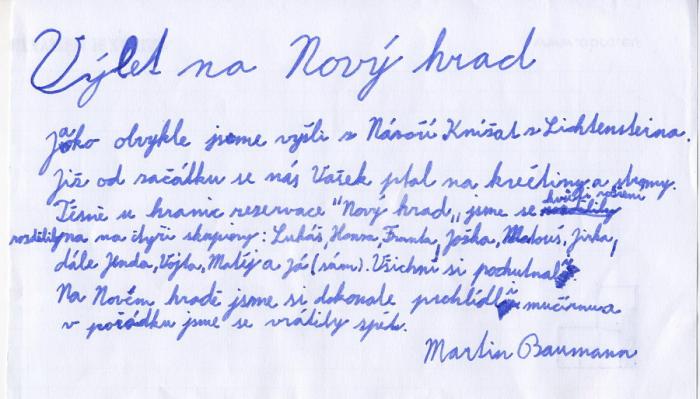 Výlet na Nový hrad
Jako obvykle jsme vyšli z Nároží Knížat z Lichtensteina.
Již od začátku se nás Vašek ptal na květiny a stromy.
Těsně u hranic rezervace "Nový hrad„ jsme se
rozdělily na čtyři skupiny: Lukáš, Honza, Franta, Joška, Matouš, Jirka,
dále Jenda, Vojta, Matěj a já (sám). Všichni si pochutnali.
Na Novém hradě jsme si dokonale prohlédli mučírnu a
v pořádku jsme se vrátily zpět.
Martin Baumann